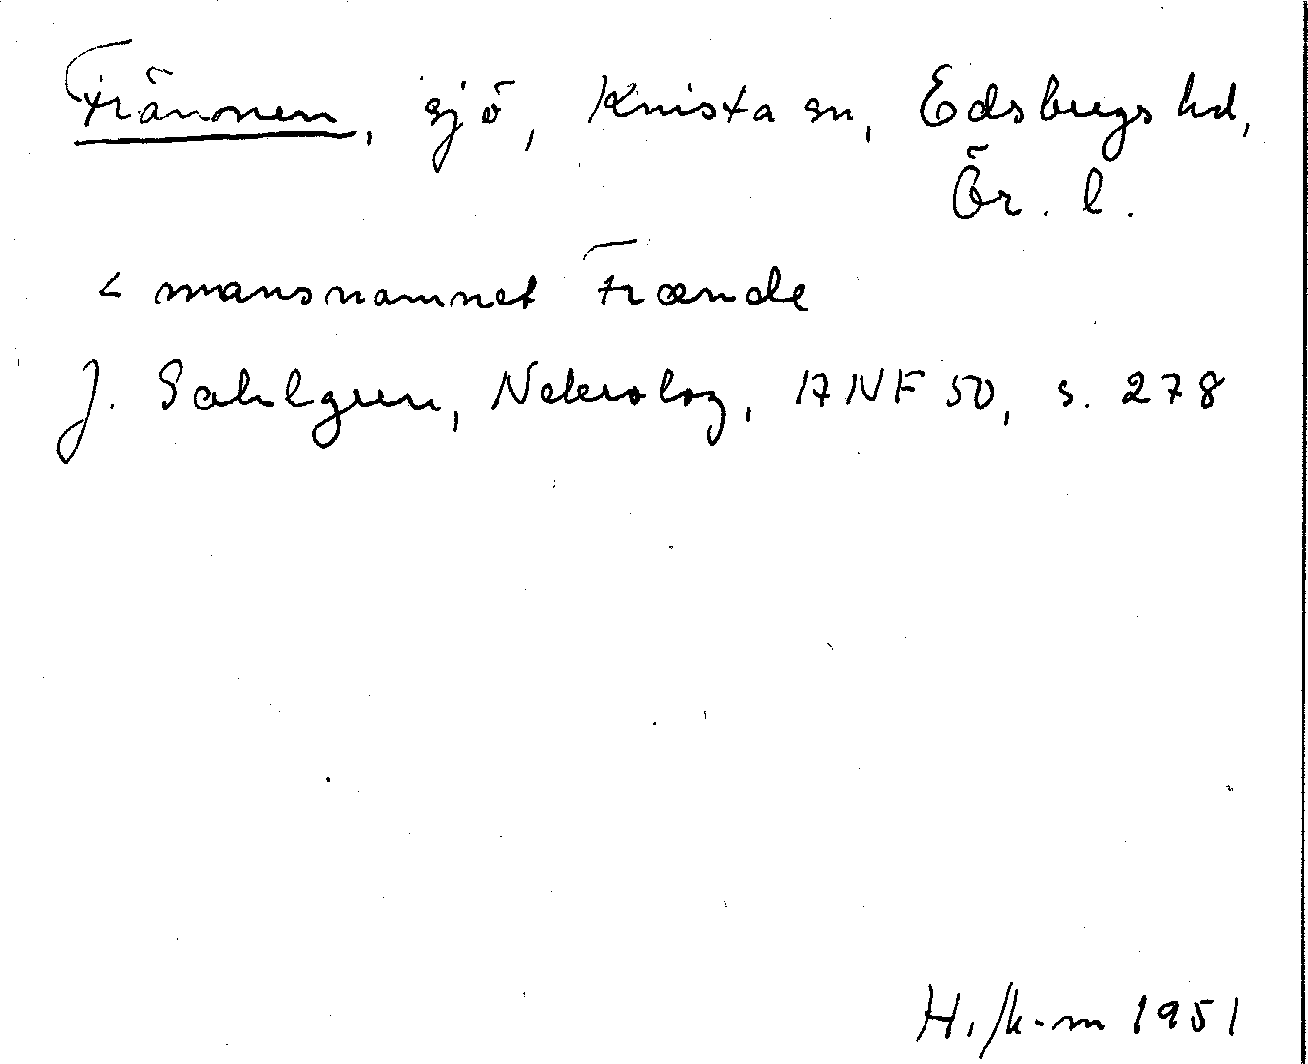 Frännen, sjö, Knista sn, Edsbergs hd,
Ör. l.
< mansnamnet Frænde
J. Sahlgren, Nekrolog, ANF 50, s. 278
H. /k-m 1951